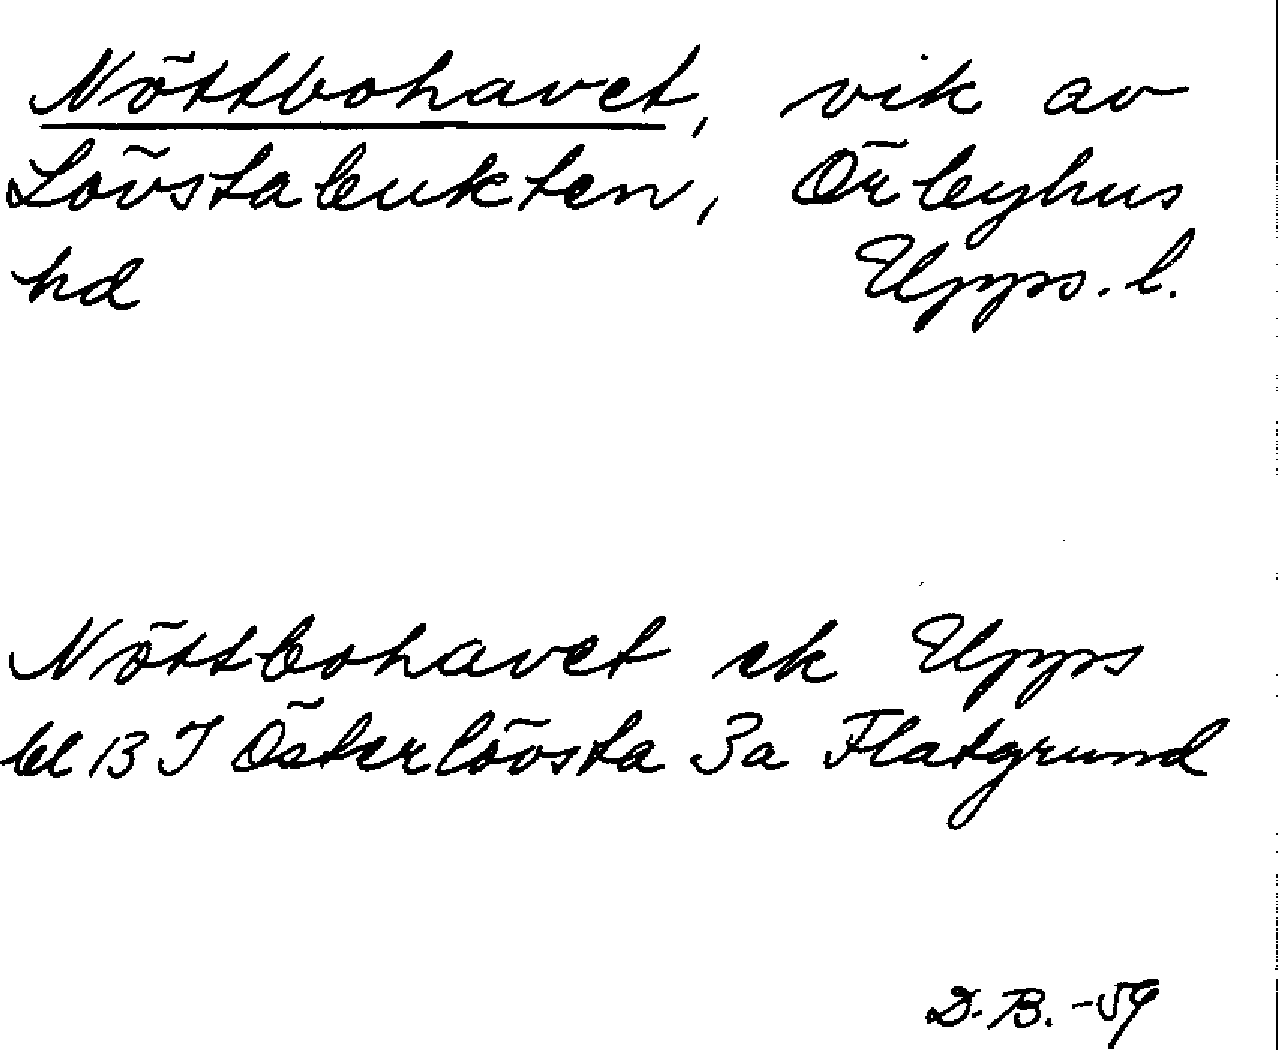 Nöttbohavet, vik av
Lövstabukten, Örbyhus
hd Upps. l.
Nöttbohavet ek Upps
bl 13 J Österlövsta 3a Flatgrund
D. B. -59